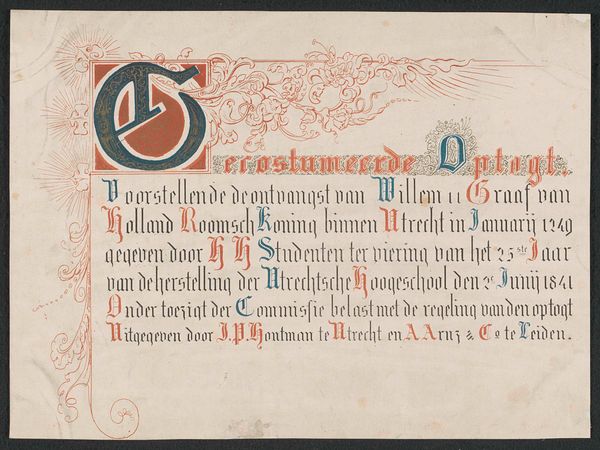 Gecostumeerde Optogt.
Voorstellende de ontvangst van Willem II Graaf van
Holland Roomsch Koning binnen Utrecht in Januarij 1249
gegeven door H H Studenten ter viering van het 25ste Jaar
van de herstelling der Utrechtsche Hoogeschool den 2e Junij 1841
Onder toezigt der Commissie belast met de regeling van den optogt
Uitgegeven door J.P. Houtman te Utrecht en A Arnz & Co. te Leiden.